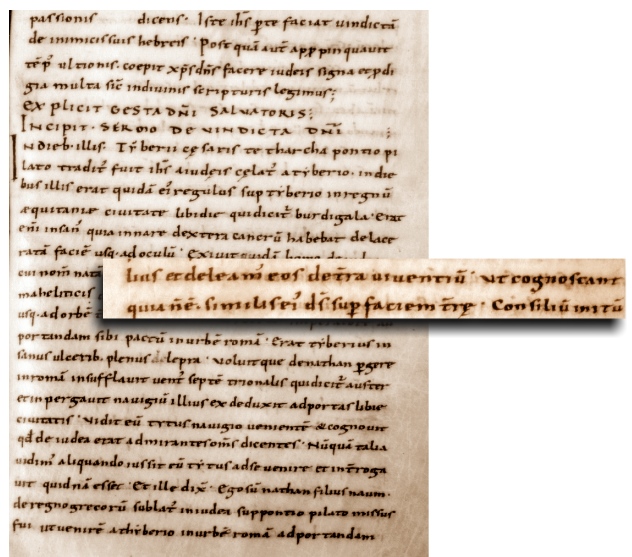 passionis dicens. Iste ihs̄ p̄te faciat vindictā
de inimicis suis hebreis. Post quā aūt app̄pinquauit
tēp̄ ultionis. coepit xp̄s dn̄s facere iudeis signa et p̄di
gia multa sic̄ in diuinis scripturis legimus;
EXPLICIT GESTA DN̄I SALVATORIS;
INCIPIT. SERMO DE VINDICTA DN̄I
IN dieb. illis. Tyberii cęsaris tetharcha pontio pi
lato traditur̄ fuit ihs̄ a iudeis cęlat̄ a tyberio. in die
bus illis erat quidā ei regulos sup tyberio in regnū
æquitaniæ ciuitate libidie qui dicit̄ burdigala. Erat
eni insan̄ quia in nare dextera cancrū habebat de lace
ratā faciē usq. ad oculū. Exiuit quidā
cui nom̄
mahelicis
usq. ad orbē
lius et deleam̄ eos de t̄ra uiuentiū. Ut cognoscant
quia n̄ē. similis ei ds̄ sup faciem t̄rę. Consiliū initū
portandam sibi pactū in urbē romā. Erat tyberius in
sanus ulcerib. plenus de lepra. Voluitque de nathan p̄gere
in romā insufflauit vent̄ septētrionalis qui dicit̄ auster
et inpergauit nauigiū illius ex deduxit ad portas libie
ciuitatis. Vidit eū tytus nauigio venient̄ & cognouit
qd̄ de iudea erat admirantes om̄s dicentes. Nūquā talia
uidim̄ aliquando iussit eū tytus ad se venire et int̄roga
uit quid nā esset. Et ille dix̄. Ego sū nathan filius naum.
de regno grecorū sublat̄ in iudea sup pontio pilato missus
fui ut venirē ad tyberio in urbē romā ad portandam